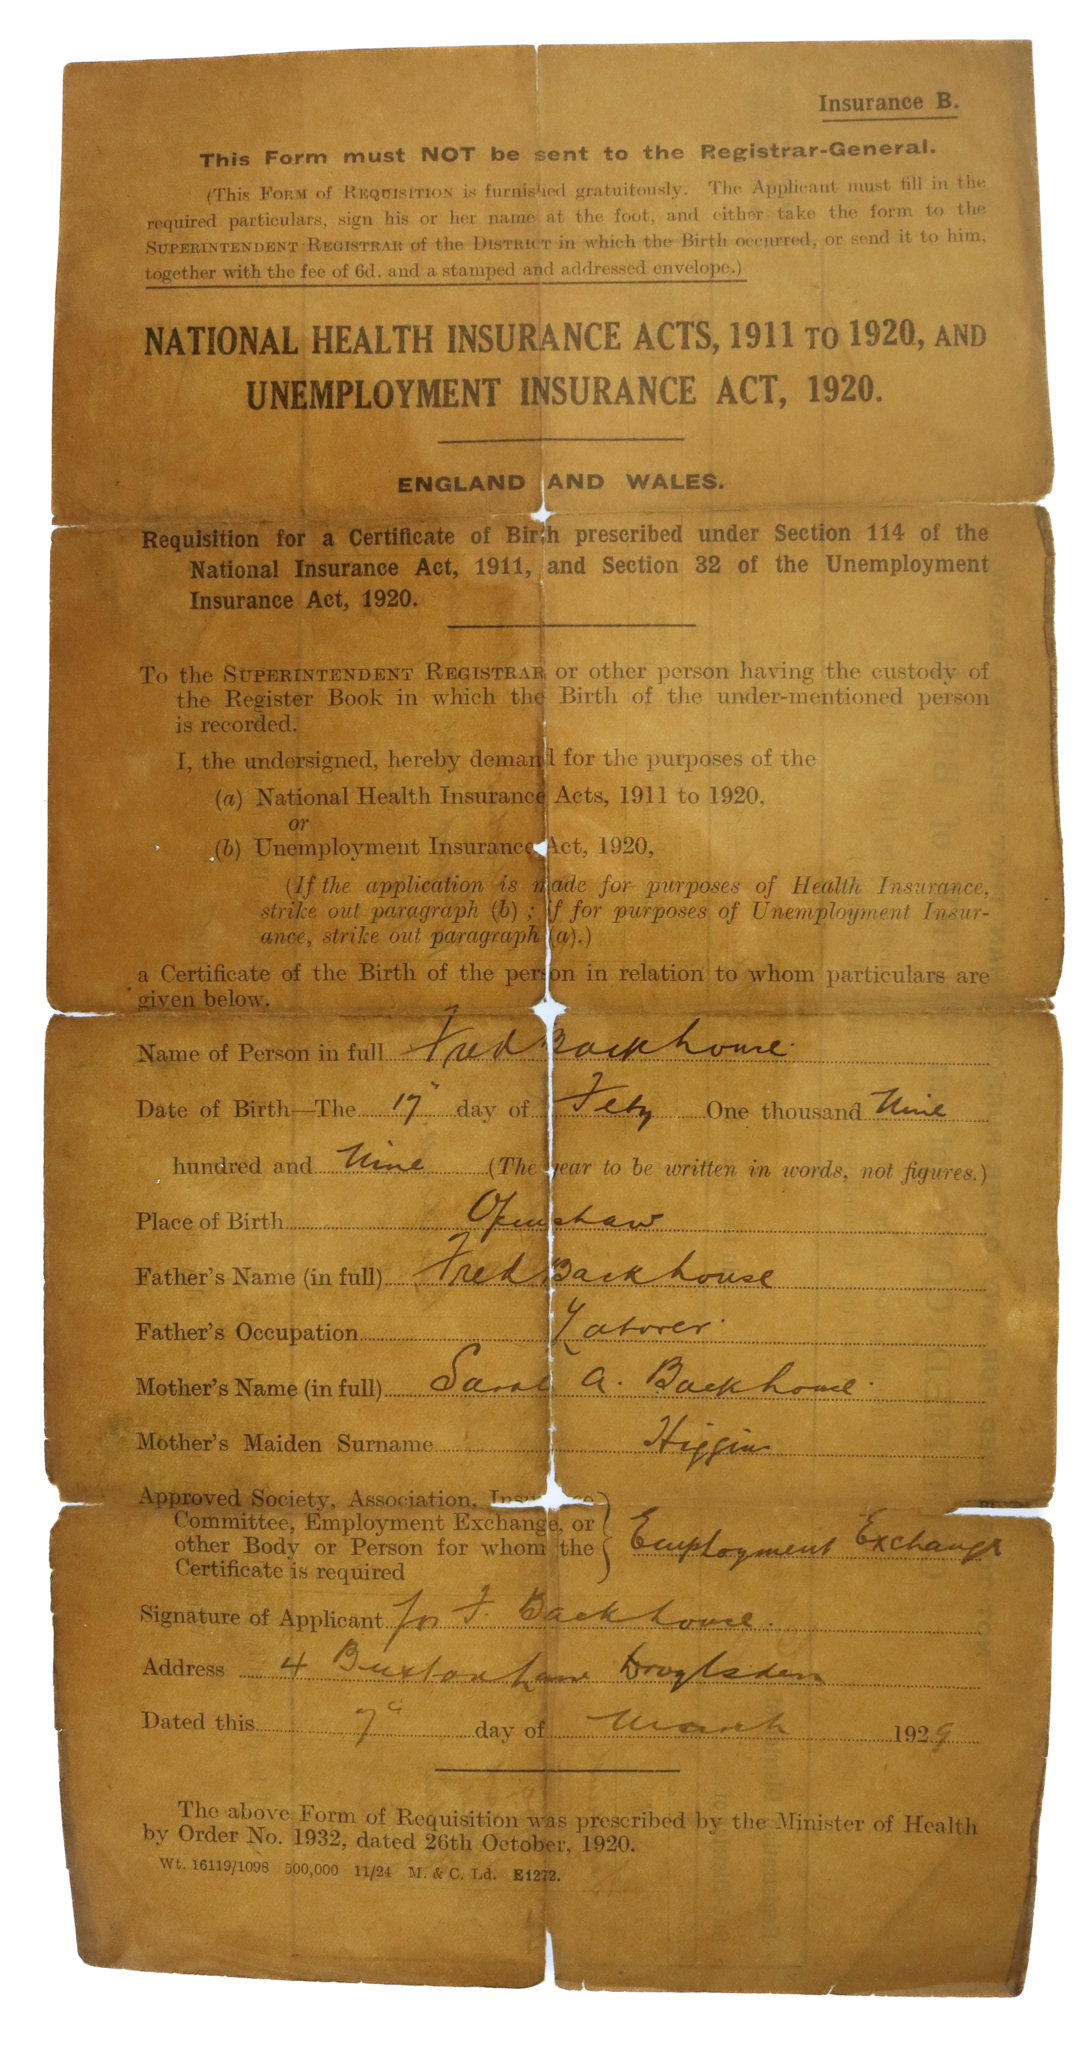 Insurance B.
This Form must NOT be sent to the Registrar-General.
(This FORM of REQUISITION is furnished gratuitously. The Applicant must fill in the
required particulars, sign his or her name at the foot, and either take the form to the
SUPERINTENDENT REGISTRAR of the DISTRICT in which the Birth occurred, or send it to him,
together with the fee of 6d. and a stamped and addressed envelope.)
NATIONAL HEALTH INSURANCE ACTS, 1911 TO 1920, AND
UNEMPLOYMENT INSURANCE ACT, 1920.
ENGLAND AND WALES.
Requisition for a Certificate of Birth prescribed under Section 114 of the
National Insurance Act, 1911, and Section 32 of the Unemployment
Insurance Act, 1920.
To the SUPERINTENDENT REGISTRAR or other person having the custody of
the Register Book in which the Birth of the under-mentioned person
is recorded.
I, the undersigned, hereby demand for the purposes of the
(a) National Health Insurance Acts, 1911 to 1920,
or
(b) Unemployment Insurance Act, 1920,
(If the application is made for purposes of Health Insurance,
strike out paragraph (b) ; if for purposes of Unemployment Insur-
ance, strike out paragraph (a).)
a Certificate of the Birth of the person in relation to whom particulars are
given below.
Name of Person in full Fred Backhouse
Date of Birth—The 17" day of Feby One thousand Nine
hundred and Nine (The year to be written in words, not figures.)
Place of Birth Openshaw
Father's Name (in full) Fred Backhouse
Father's Occupation Laborer
Mother's Name (in full) Sarah A. Backhouse
Mother's Maiden Surname Higgins
Approved Society, Association, Insurance
Committee, Employment Exchange, or
other Body or Person for whom the Employment Exchange
Certificate is required
Signature of Applicant for F. Backhouse.
Address 4 Buxton Lane Droylsden
Dated this 7 day of March 1929
The above Form of Requisition was prescribed by the Minister of Health
by Order No. 1932, dated 26th October, 1920.
Wt. 16119/1098 500,000 11/24 M. & C. Ld. E1272.